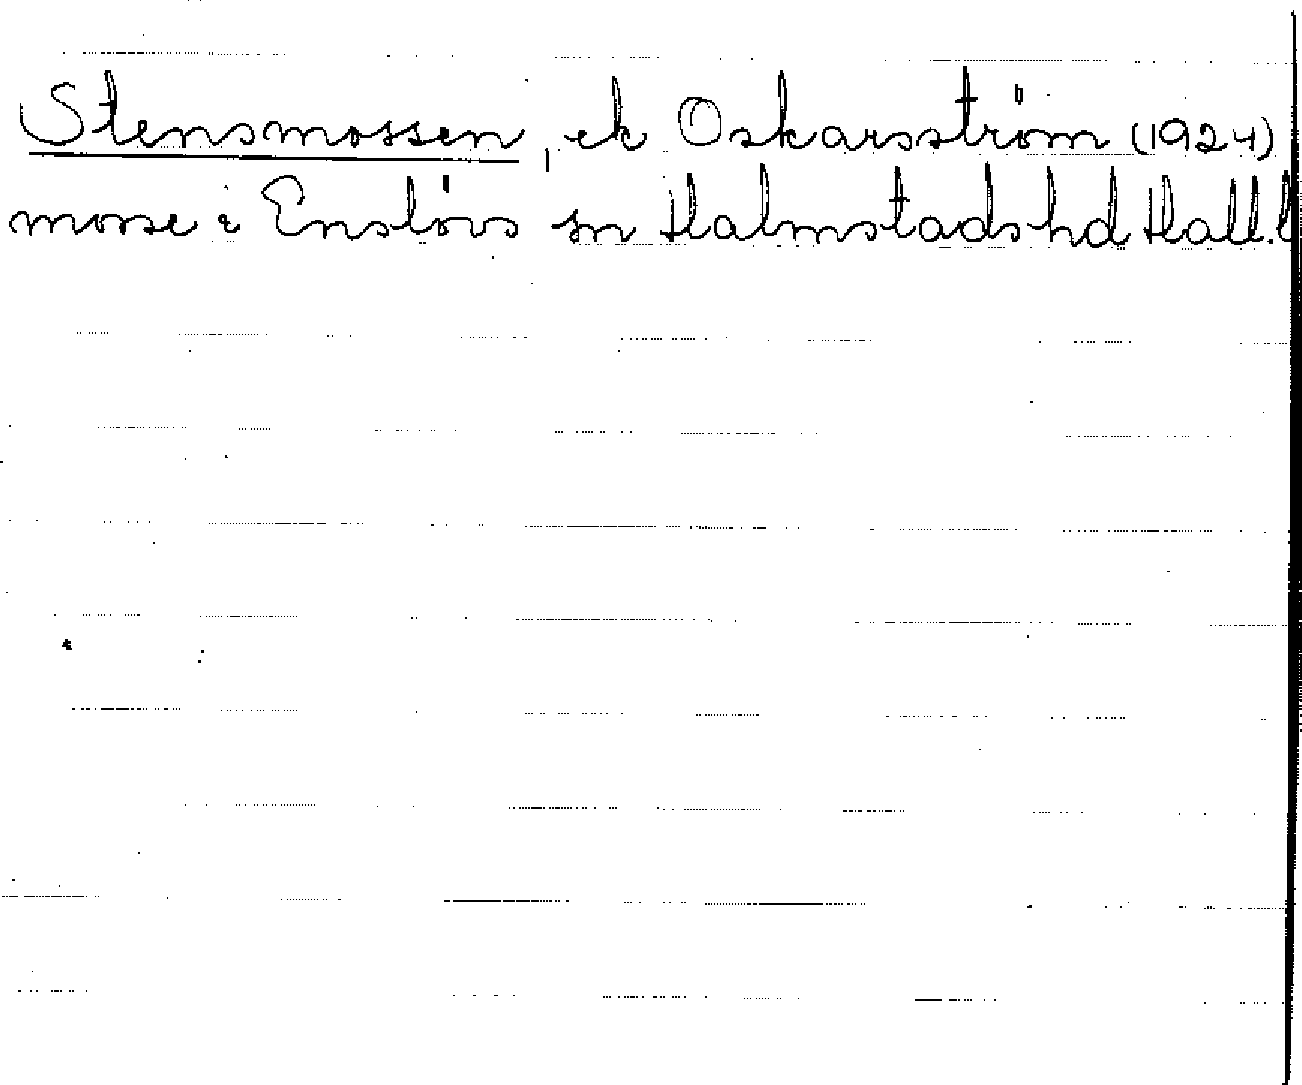 Stensmossen, ek Oskarsström (1924)
mosse i Enslövs sn Halmstads hd Hall. l